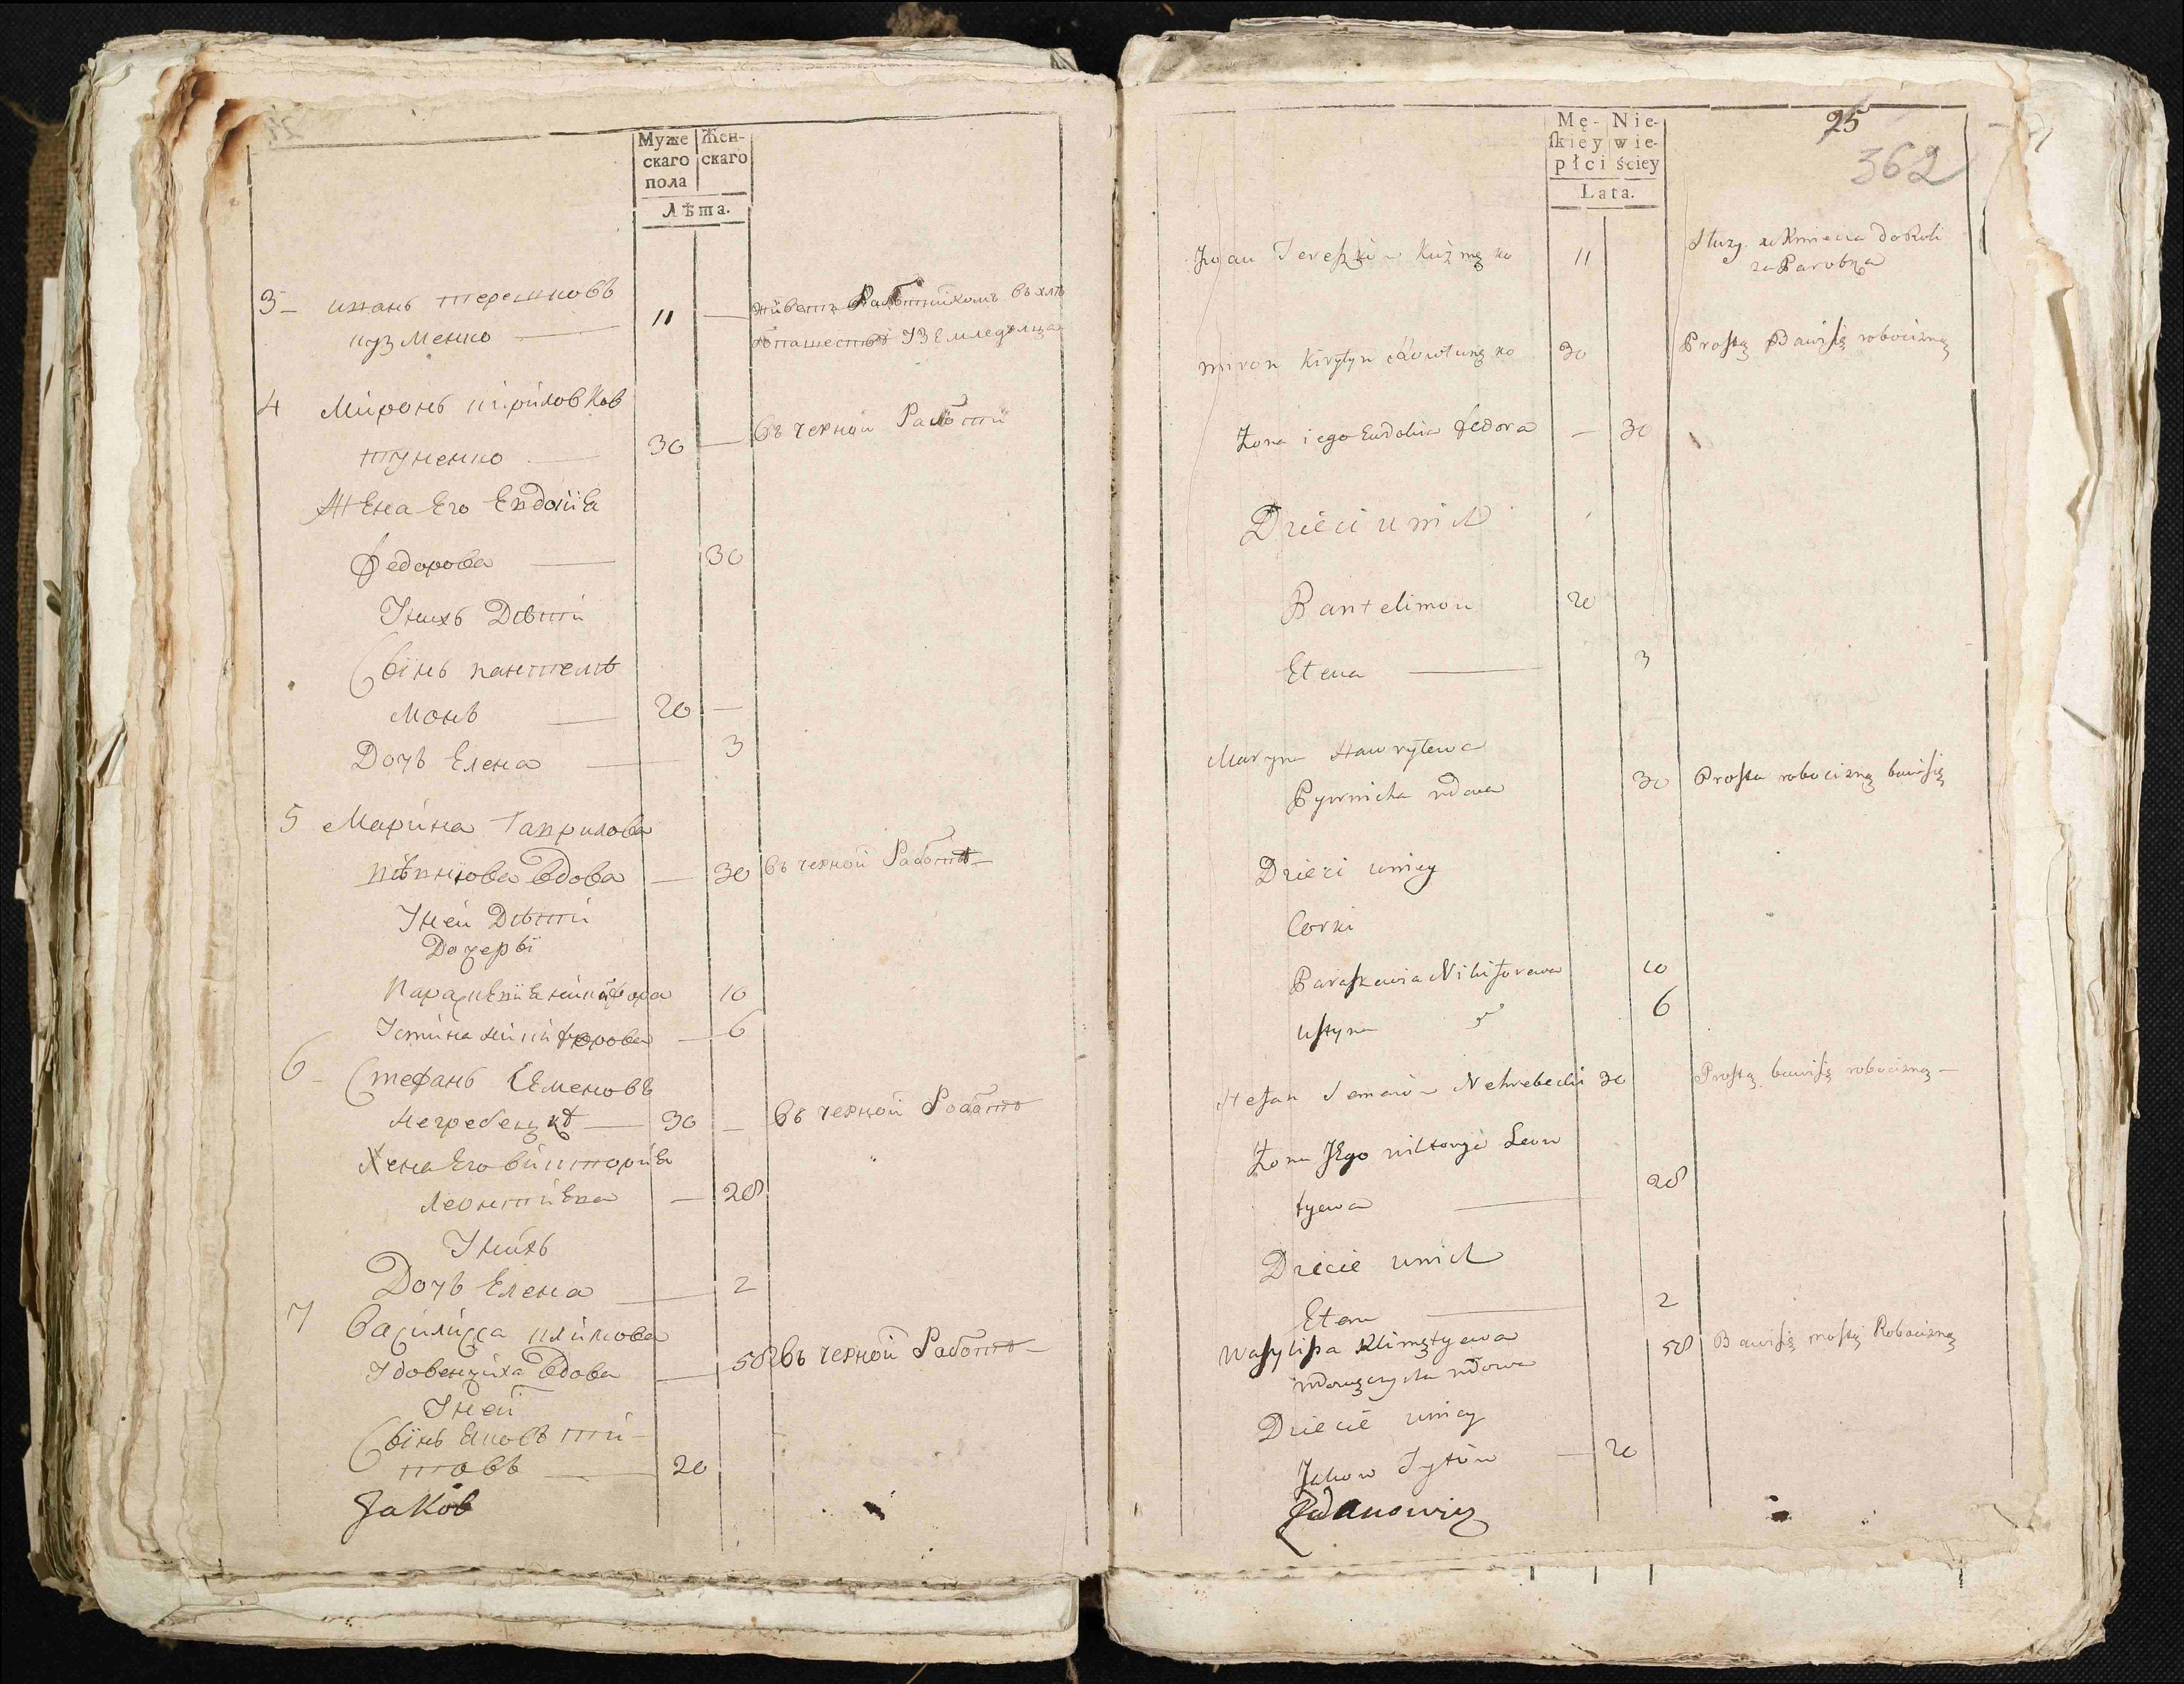 Муже
скаго
пола
Жен-
скаго
Лѣта.
3 - Иванъ терешковъ
кузменко — 11 —
живетъ Работникомъ въ хлѣ
бопашества Земледѣлца
4 Миронъ кириловъ Ков
туненко — 30 — въ черной Работи
Жена Его Евдокия
федорова — 30
Унихъ Дѣти
Синъ пантелѣ
монъ — 20 —
Дочъ Елена — 3
5 Марина Гаврилова
вдова — 30 въ черной Работѣ
Уней Дѣти
Дочери
Параскевия никифора 10
Устина никифорова — 6
6 - Стефанъ Семеновъ
Негребецкѣ — 30 — въ черной Работѣ
Жена Его виктория
Леонтиева — 28
Унихъ
Дочъ Елена — 2
7 Василиса климова
Удовенчиха вдова — 58 въ черной Работѣ
Уней
Синъ Яковъ ти-
товъ — 20
Jakób
Mę-
ſkiey
płci
Nie-
wie-
ściey
Lata.
25
362
Iwan Tereſzków Kuźmęko 11
Służy u Kmiecia do Roli
za Parobka
miron Kiryłyn Kowtunęko 30 Proſtą Bawiſię robocizną
Żona iego Eudokia fedora — 30
Dzieci unich
Pantelimon 20
Elena — 3
Maryna Hawryłewa
wdowa 30 Proſta robocizną bawiſię
Dzieci unięy
Corki
Paraſkewia Nikiforewa 10
Uſtyna 6
Stefan Semenów Nehrebecki 30 Proſtą bawiſię robocizną —
Żona Jego wiktorya Leon
tyewa — 28
Dziecie unich
Elena — 2
Waſyliſsa Klimętyewa
wdowęczycha wdowa 58 Bawiſię proſtą Robocizną
Dziecie unięy
Jakow Tytów — 20
Jadanowicz